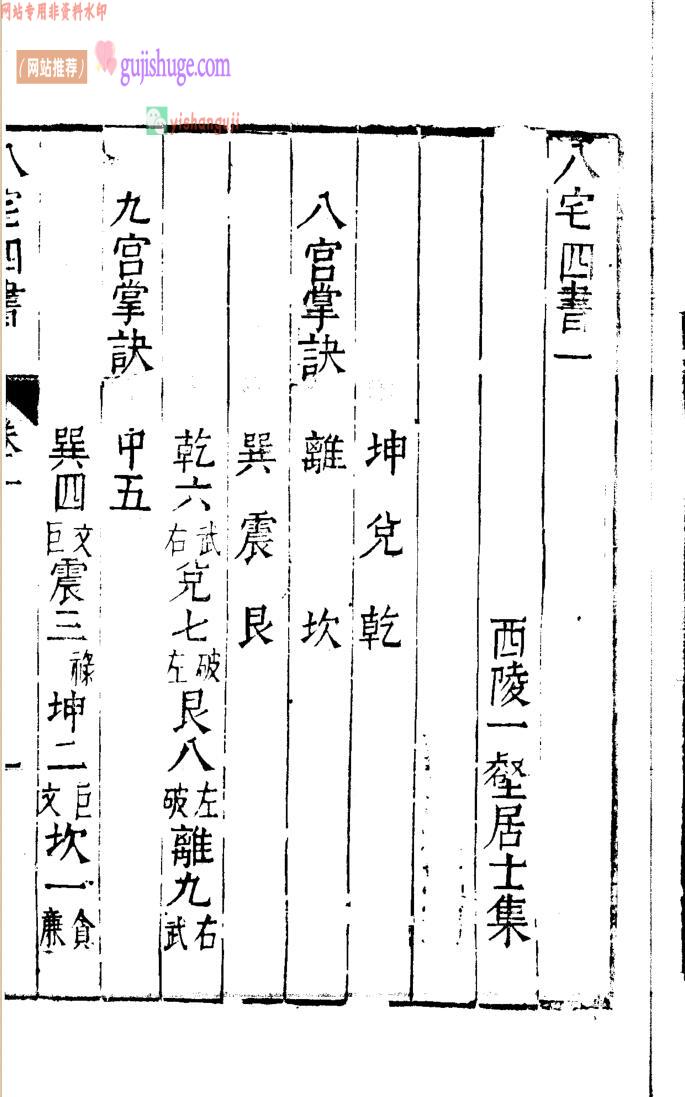 网站专用非资料水印
（网站推荐）
gujishuge.com
yishanguji
八宅四書一
西陵一壑居士集
坤兌乾
八宮掌訣 離 坎
巽震艮
乾六武右兌七破左艮八左破離九右武
九宮掌訣 中五
巽四文巨震三祿坤二巨文坎一貪廉
八宅四書 卷一 一